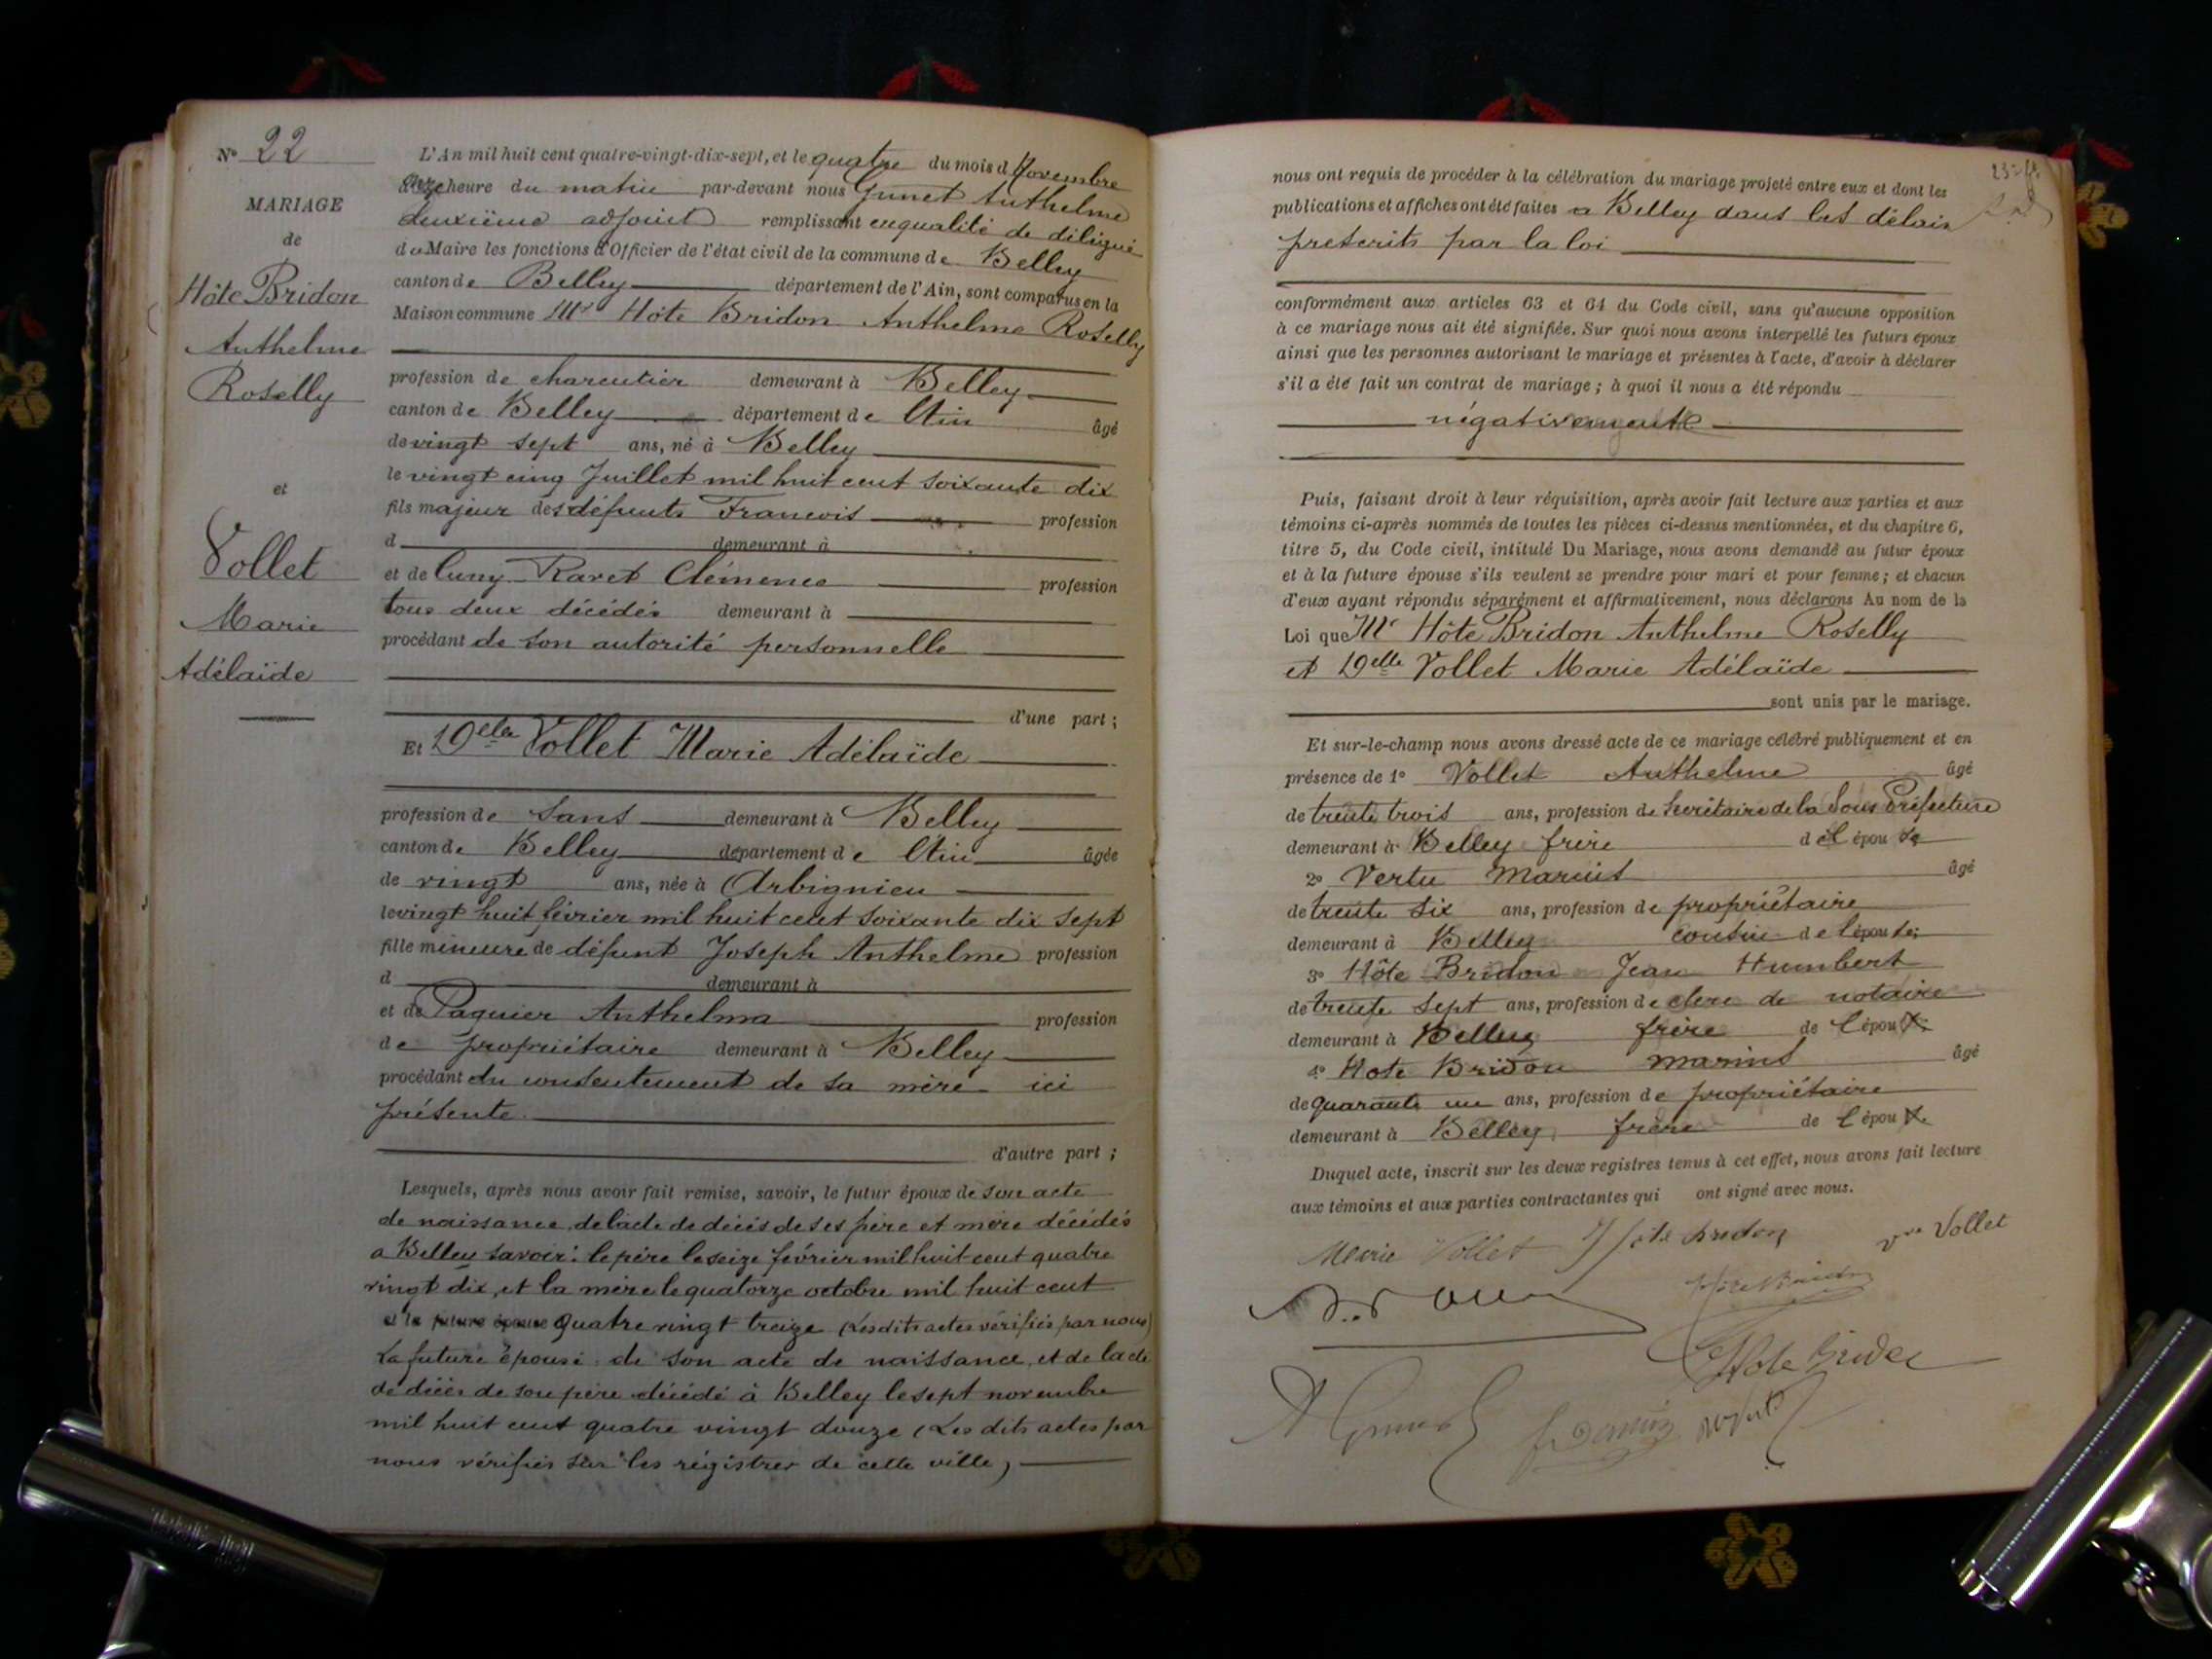 N° 22
MARIAGE
de
Hôte Bridon
Anthelme
Roselly
et
Vollet
Marie
Adélaïde
L'An mil huit cent quatre-vingt-dix-sept, et le quatre du mois d Novembre
heure du matin par-devant nous Gunet Anthelme
deuxième adjoint remplissant en qualité de délégué
du Maire les fonctions d'Officier de l'état civil de la commune de Belley
canton de Belley département de l'Ain, sont comparus en la
Maison commune Mr Hôte Bridon Anthelme Roselly
profession de charcutier demeurant à Belley
canton de Belley département de l'Ain âgé
de vingt sept ans, né à Belley
le vingt cinq Juillet mil huit cent soixante dix
fils majeur des défunts Francois profession
d demeurant à
et de Cuny Ravet Clémence profession
tous deux décédés demeurant à
procédant de son autorité personnelle
d'une part ;
Et Delle Vollet Marie Adélaïde
profession de sans demeurant à Belley
canton de Belley département de l'Ain âgée
de vingt ans, née à Arbignieu
le vingt huit février mil huit cent soixante dix sept
fille mineure de défunt Joseph Anthelme profession
d demeurant à
et de Paquier Anthelma profession
de propriétaire demeurant à Belley
procédant du consentement de sa mère ici
présente.
d'autre part ;
Lesquels, après nous avoir fait remise, savoir, le futur époux de son acte
de naissance, de l'acte de décès de ses père et mère décédés
a Belley savoir : le père le seize février mil huit cent quatre
vingt dix, et la mère le quatorze octobre mil huit cent
et la future épouse quatre vingt treize (Lesdits actes vérifiés par nous)
La future épouse de son acte de naissance, et de l'acte
de décès de son père décédé à Belley le sept novembre
mil huit cent quatre vingt douze (Les dits actes par
nous vérifiés sur les régistres de cette ville)
nous ont requis de procéder à la célébration du mariage projeté entre eux et dont les
publications et affiches ont été faites a Belley dans les délais
prescrits par la loi
conformément aux articles 63 et 64 du Code civil, sans qu'aucune opposition
à ce mariage nous ait été signifiée. Sur quoi nous avons interpellé les futurs époux
ainsi que les personnes autorisant le mariage et présentes à l'acte, d'avoir à déclarer
s'il a été fait un contrat de mariage ; à quoi il nous a été répondu
négativement
Puis, faisant droit à leur réquisition, après avoir fait lecture aux parties et aux
témoins ci-après nommés de toutes les pièces ci-dessus mentionnées, et du chapitre 6,
titre 5, du Code civil, intitulé Du Mariage, nous avons demandé au futur époux
et à la future épouse s'ils veulent se prendre pour mari et pour femme ; et chacun
d'eux ayant répondu séparément et affirmativement, nous déclarons Au nom de la
Loi que Mr Hôte Bridon Anthelme Roselly
et Delle Vollet Marie Adélaïde
sont unis par le mariage.
Et sur-le-champ nous avons dressé acte de ce mariage célébré publiquement et en
présence de 1° Vollet Anthelme âgé
de trente trois ans, profession de Secrétaire de la Sous Préfecture
demeurant à Belley frère de l'épouse
2° Vertu Marius âgé
de trente six ans, profession de propriétaire
demeurant à Belley cousin de l'épouse;
3° Hôte Bridon Jean Humbert
de trente sept ans, profession de clerc de notaire
demeurant à Belley frère de l'époux;
4° Hote Bridon Marius âgé
de quarante un ans, profession de propriétaire
demeurant à Belley, frère de l'époux.
Duquel acte, inscrit sur les deux registres tenus à cet effet, nous avons fait lecture
aux témoins et aux parties contractantes qui ont signé avec nous.
Marie Vollet Hôte Bridon vve Vollet
Hote Bridon